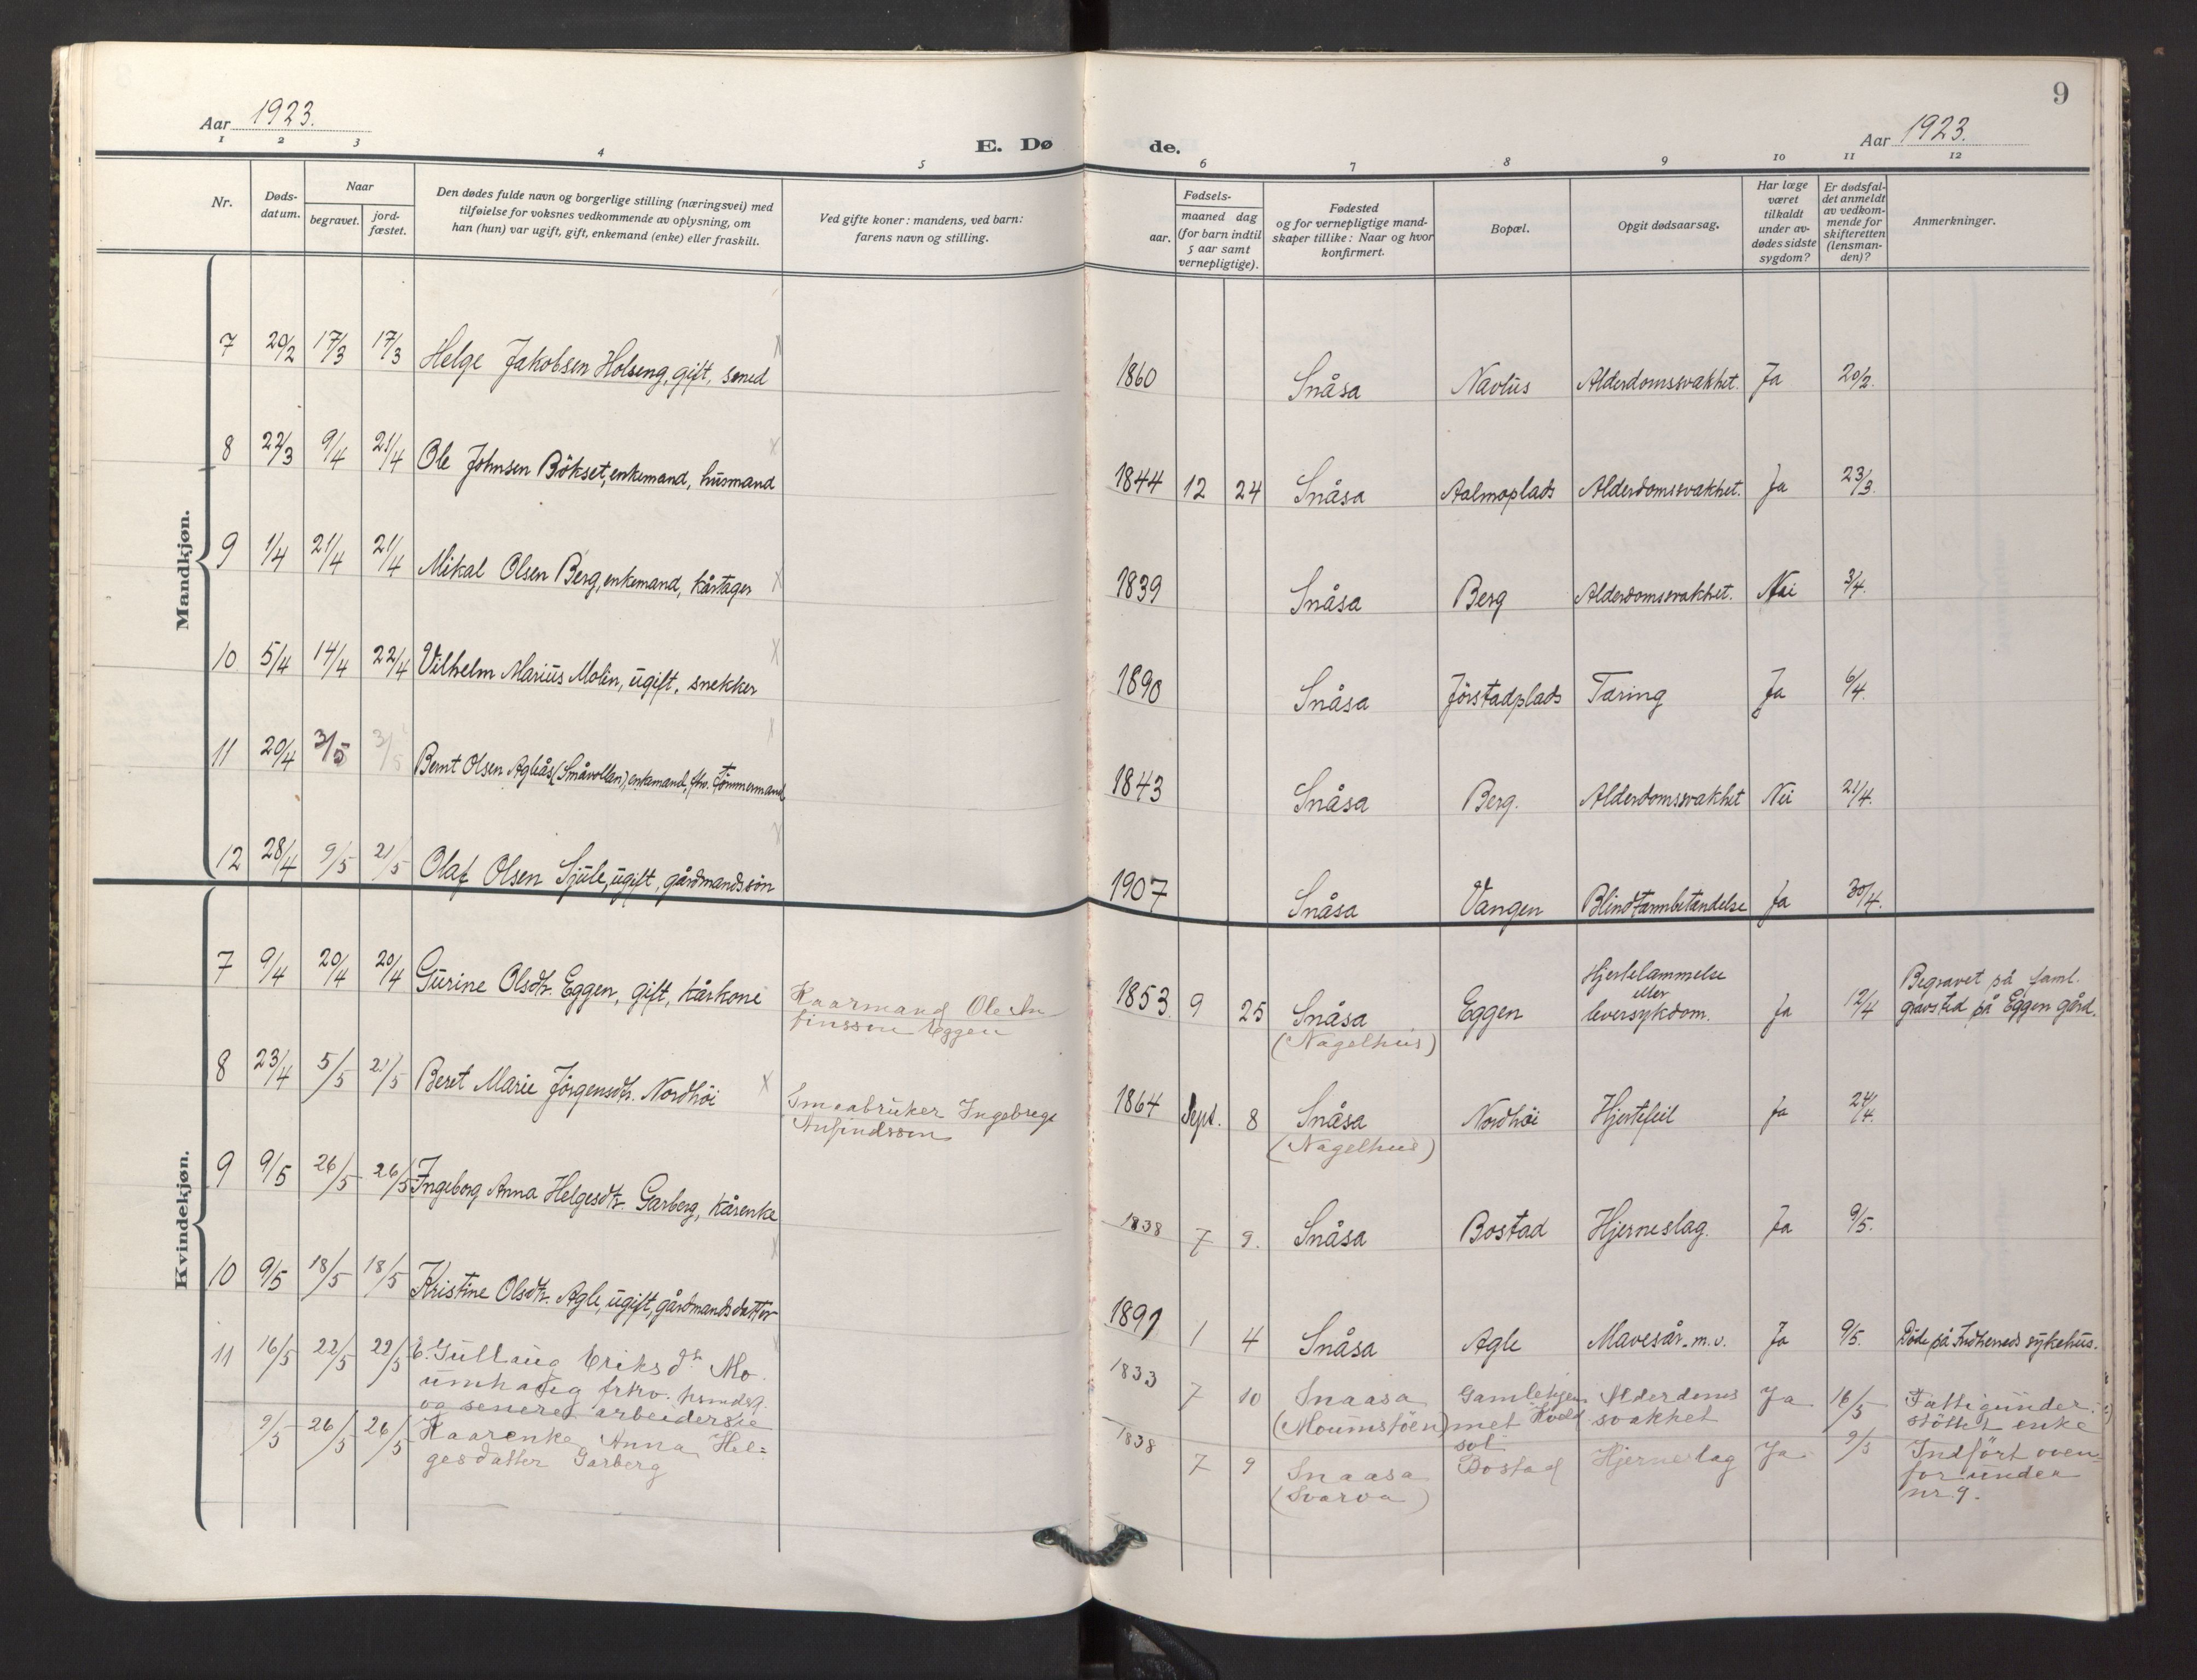 9
Aar 1923.
E. Dø
de.
Aar 1923.
1 2 3 4 5 6 7 8 9 10 11 12
Nr.
Døds-
datum.
Naar
begravet.
jord-
fæstet.
Den dødes fulde navn og borgerlige stilling (næringsvei) med
tilføielse for voksnes vedkommende av oplysning, om
han (hun) var ugift, gift, enkemand (enke) eller fraskilt.
Ved gifte koner: mandens, ved barn:
farens navn og stilling.
Fødsels-
aar.
maaned dag
(for barn indtil
5 aar samt
vernepligtige).
Fødested
og for vernepligtige mand-
skaper tillike: Naar og hvor
konfirmert.
Bopæl.
Opgit dødsaarsag.
Har læge
været
tilkaldt
under av-
dødes sidste
sygdom?
Er dødsfal-
det anmeldt
av vedkom-
mende for
skifteretten
(lensman-
den)?
Anmerkninger.
Mandkjøn.
7 20/2 17/3 17/3 Helge Jakobsen Holseng, gift, smed 1860 Snåsa Navlus Alderdomssvakhet. Ja 20/2.
8 22/3 9/4 21/4 Ole Johnsen Bökset, enkemand, husmand 1844 12 24 Snåsa Aalmoplads Alderdomssvakhet. Ja 23/3.
9 1/4 21/4 21/4 Mikal Olsen Berg, enkemand, kårtager 1839 Snåsa Berg Alderdomssvakhet. Nei 3/4.
10 5/4 14/4 22/4 Vilhelm Marius Molin, ugift, snekker 1890 Snåsa Jörstadplads Tæring Ja 6/4.
11 20/4 3/5 3/5 Bernt Olsen Agleås (Småvollen), enkemand, fhv. Tömmermand 1843 Snåsa Berg. Alderdomssvakhet Nei 21/4.
12 28/4 9/5 21/5 Olaf Olsen Sjule, ugift, gårdmandssön 1907 Snåsa Vangen Blindtarmbetændelse Ja 30/4.
Kvindekjøn.
7 9/4 20/4 20/4 Gurine Olsdtr. Eggen, gift, kårkone Kaarmand Ole An-
finssen Eggen 1853. 9 25 Snåsa
(Nagelhus) Eggen Hjertelammelse
eller
leversykdom. Ja 12/4 Begravet på faml.
gravsted på Eggen gård.
8 23/4 5/5 21/5 Beret Marie Jörgensdtr. Nordhöi Smaabruker Ingebrigt
Anfindssen 1864 Sept. 8 Snåsa
(Nagelhus) Nordhöi Hjertefeil Ja 24/4.
9 9/5 26/5 26/5 Ingeborg Anna Helgesdtr. Garberg, kårenke 1838 7 9. Snåsa Bostad Hjerneslag. Ja 9/5.
10 9/5 18/5 18/5 Kristine Olsdtr. Agle, ugift, gårdmandsdatter 1891 1 4 Snåsa Agle Mavesår m.v. Ja 9/5. Döde på Indherreds sykehus.
11 16/5 22/5 22/5 E. Gullaug Eriksdtr Mo-
umhaug
og senere arbeiderske 1833 7 10 Snaasa
(Moumstöen) Gamlehjem-
met Kveld-
sol Alderdoms
svakhet Ja 16/5 Fattigunder-
stöttet enke
9/5 26/5 26/5 Kaarenke Anna Hel=
gesdatter Garberg 1838 7 9 Snaasa
(Svarva) Bostad Hjerneslag Ja 9/5 Indfört oven-
for under
nr. 9.